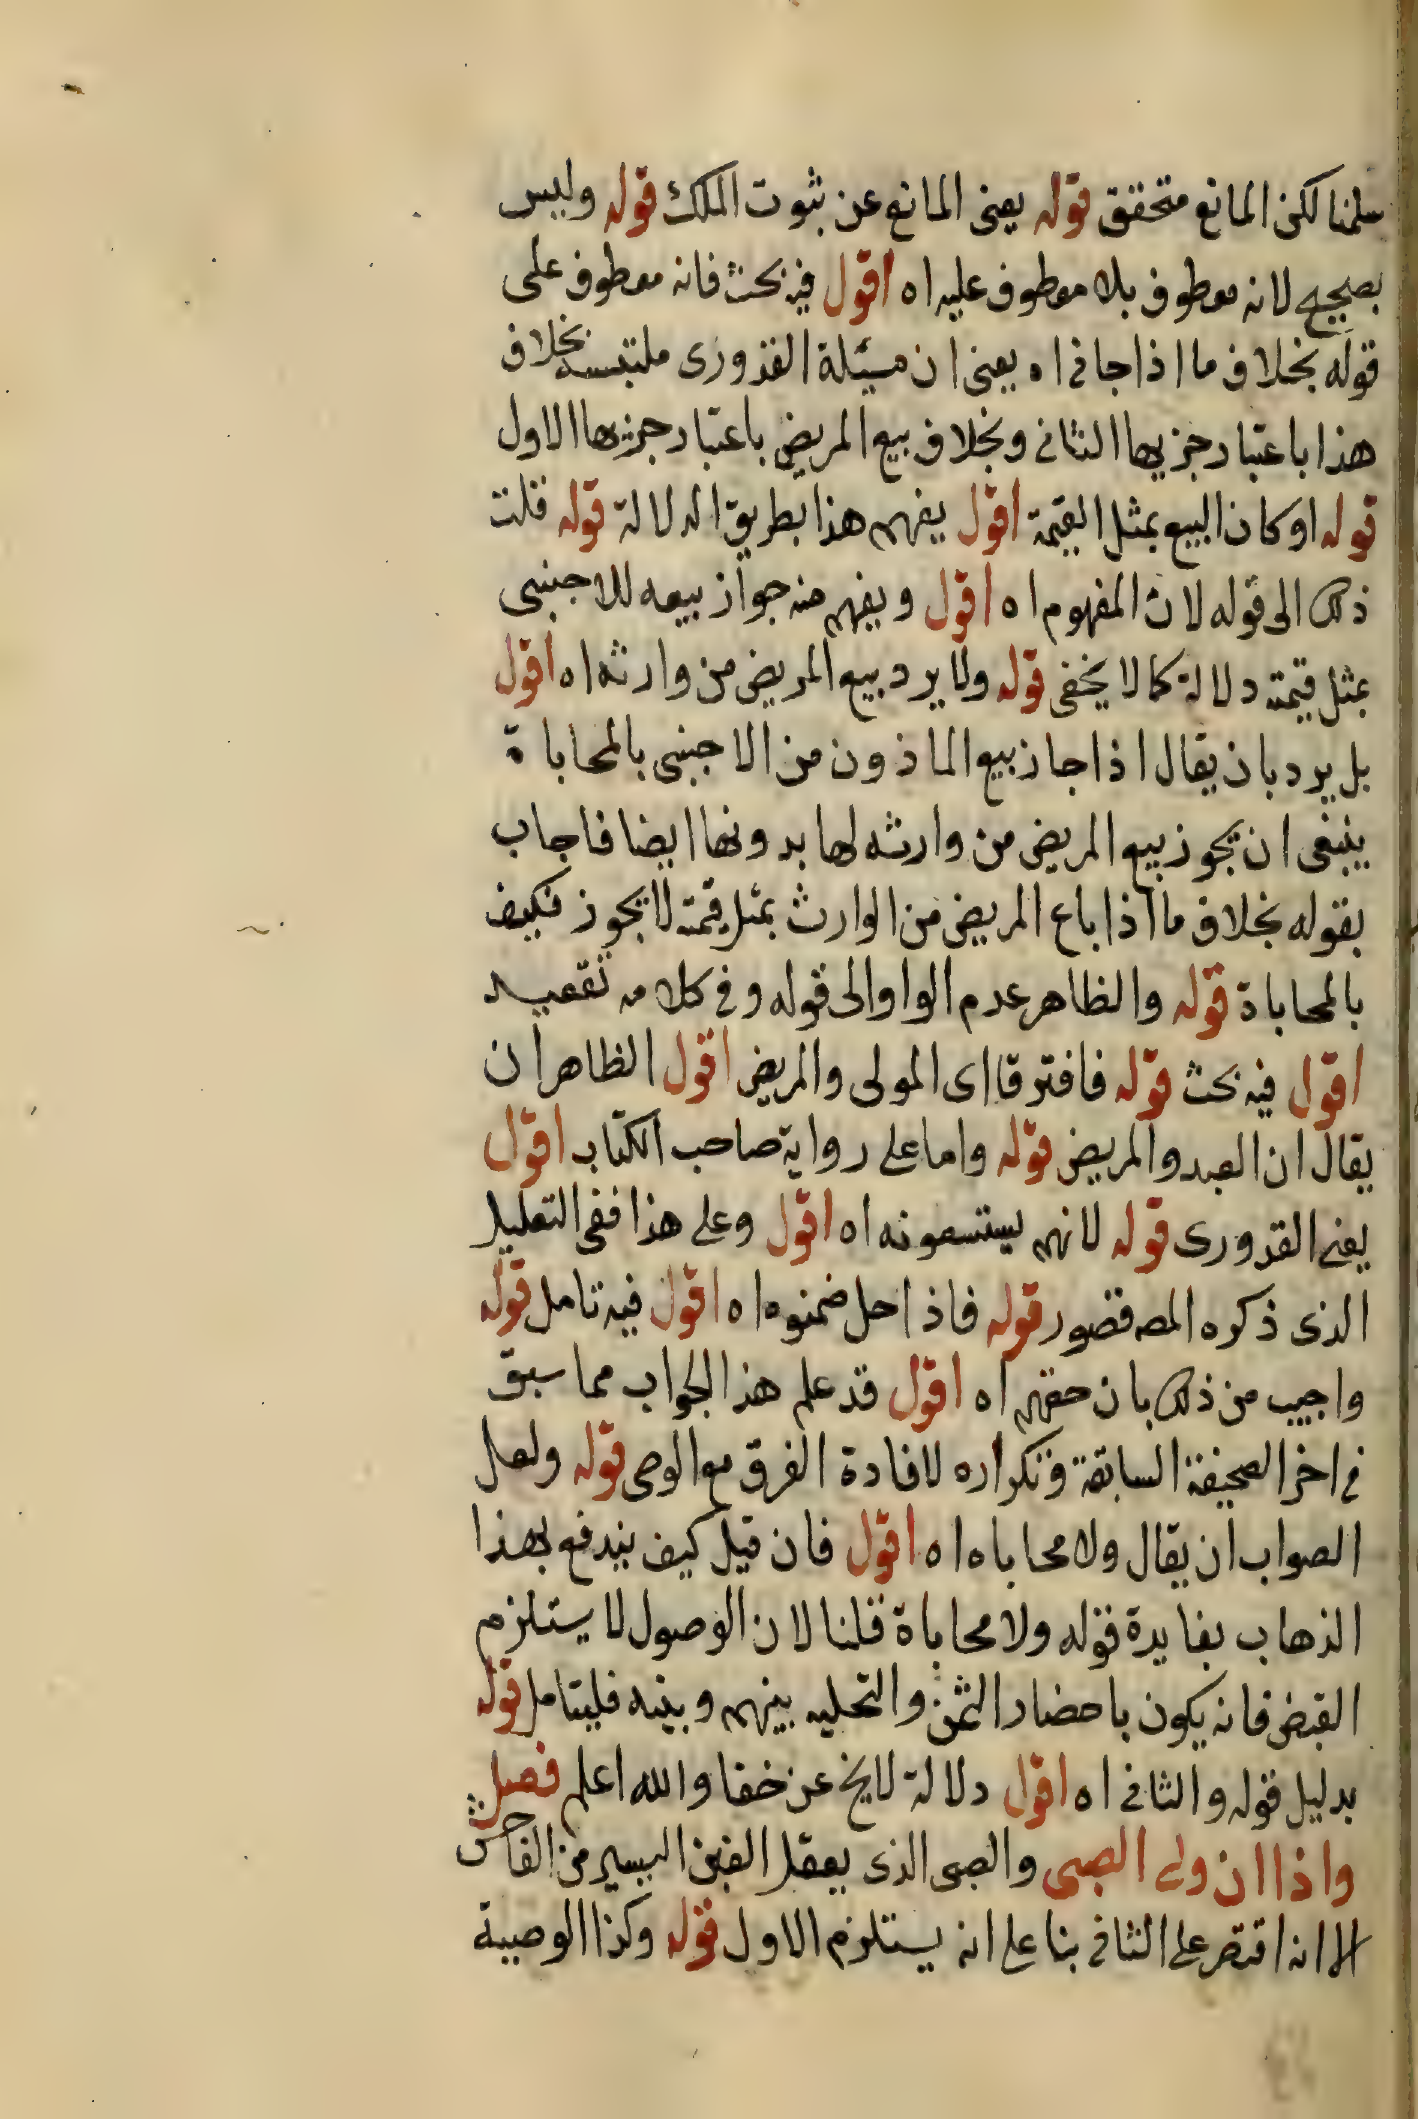 سلمنا لكن المانع متحقق قوله يعنى المانع عن ثبوت الملك قوله وليس
بصحيح لانه معطوف بلا معطوف عليه اه اقول فيه بحث فانه معطوف على
قوله بخلاف ما اذا حابى اه يعنى ان مسئلة القدورى ملتبسة بخلاف
هذا باعتبار جزيها الثانى وبخلاف بيع المريض باعتبار جزيها الاول
قوله او كان البيع بمثل القيمة اقول يفهم هذا بطريق الدلالة قوله قلت
ذلك الى قوله لان المفهوم اه اقول ويفهم منه جواز بيعه للاجنبى
بمثل قيمته دلالة كما لا يخفى قوله ولا يرد بيع المريض من وارثه اه اقول
بل يرد بان يقال اذا جاز بيع الماذون من الاجنبى بالمحاباة
ينبغى ان يجوز بيع المريض من وارثه لها بدونها ايضا فاجاب
بقوله بخلاف ما اذا باع المريض من الوارث بمثل قيمته لا يجوز فكيف
بالمحاباة قوله والظاهر عدم الواو الى قوله وفى كلامه تعقيد
اقول فيه بحث قوله فافترقا اى المولى والمريض اقول الظاهر ان
يقال ان العبد والمريض قوله واما على رواية صاحب الكتاب اقول
يعنى القدورى قوله لانهم يستسعونه اه اقول وعلى هذا ففى التعليل
الذى ذكره المصـ قصور قوله فاذا حل ضمنوه اه اقول فيه تامل قوله
واجيب من ذلك بان حقهم اه اقول قد علم هذا الجواب مما سبق
فى اخر الصحيفة السابقة وتكراره لافادة الفرق مع الوصى قوله ولعل
الصواب ان يقال ولا محاباه اه اقول فان قيل كيف يندفع بهذا
الذهاب بفايدة قوله ولا محاباة قلنا لان الوصول لا يستلزم
القبض فانه يكون باحضار الثمن والتخليه بينهم وبينه فليتامل قوله
بدليل قوله والثانى اه اقول دلالة لايخ عن خفا والله اعلم فصل
واذا ان ولى الصبى والصبى الذى يعقل الغبن اليسير من الفاحش
الا انه اقتصر على الثانى بنا على انه يستلزم الاول قوله وكذا الوصية